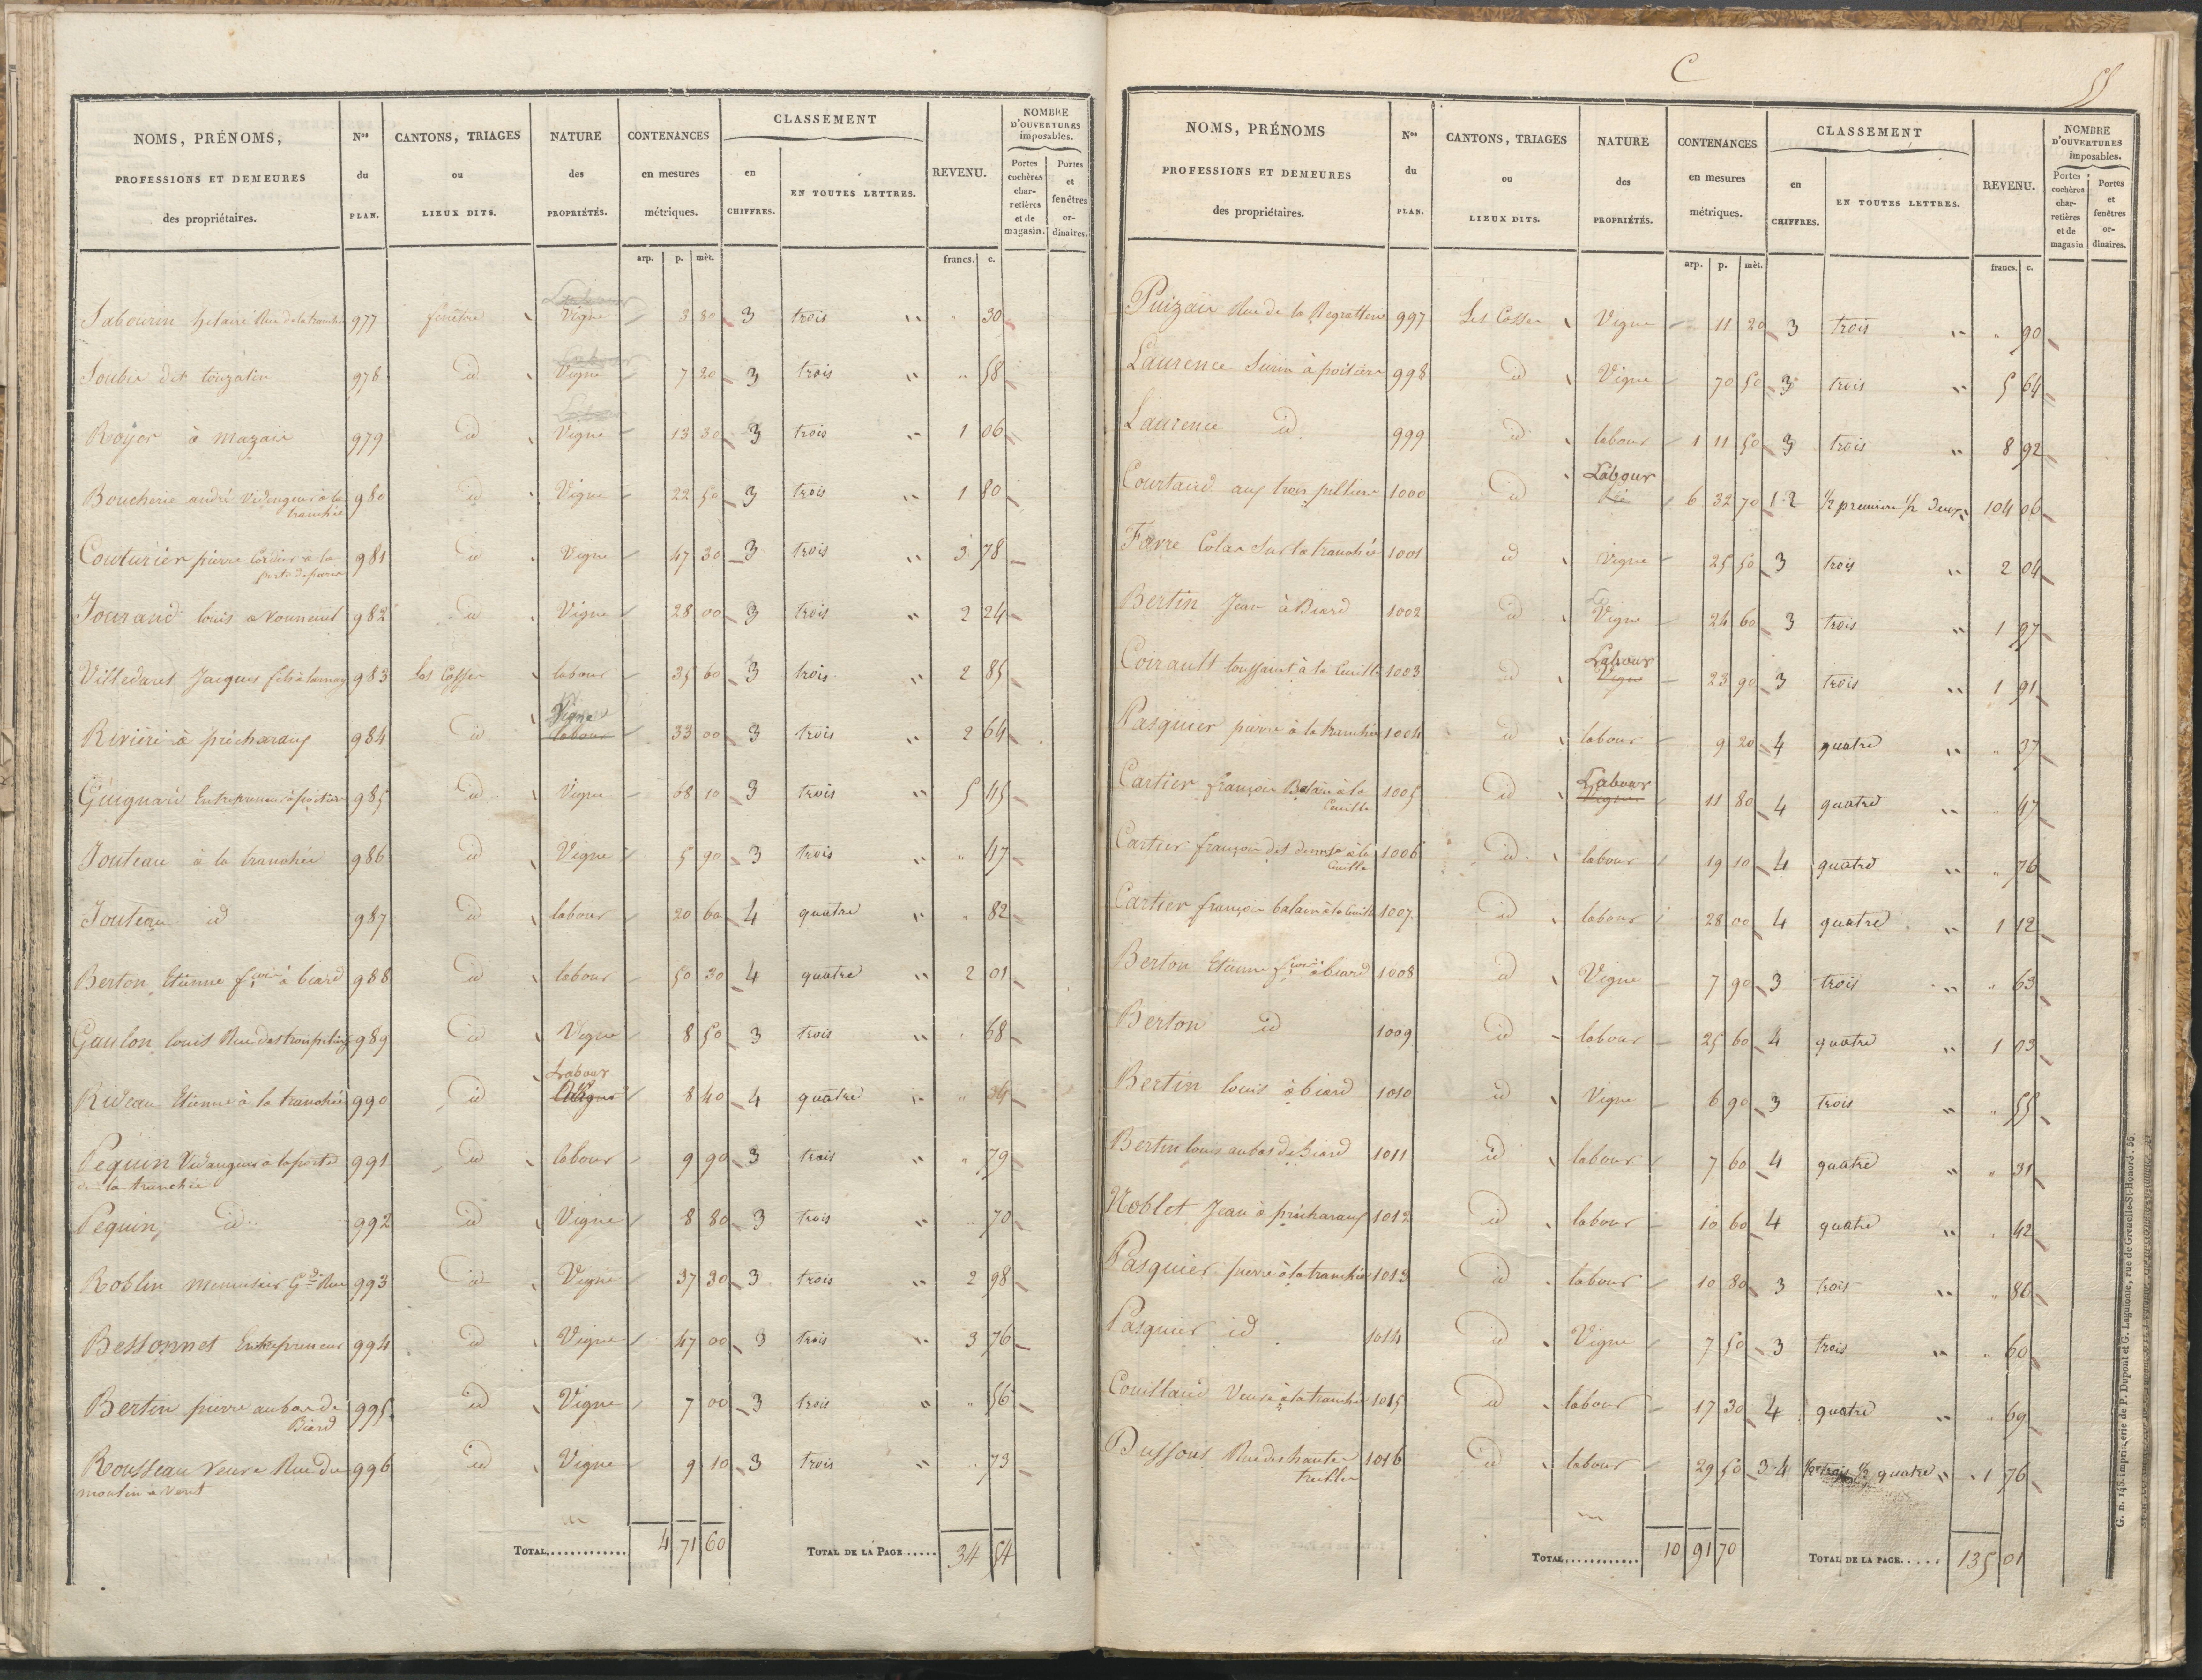 NOMS, PRÉNOMS, PROFESSIONS ET DEMEURES des propriétaires. | Nos du PLAN. | CANTONS, TRIAGES ou LIEUX DITS. | NATURE des PROPRIÉTÉS. | CONTENANCES en mesures métriques. | CLASSEMENT en CHIFFRES. | EN TOUTES LETTRES. | REVENU. | NOMBRE D'OUVERTURES imposables. Portes cochères charretières et de magasin. | Portes et fenêtres ordinaires.
arp. p. mèt. francs. c.
Sabourin hilaire Rue de la tranchée 977 Vigne 3 80 3 trois " " 30
978 id Vigne 7 20 3 trois " " 58
Royer à 979 id Vigne 13 30 3 trois " 1 06
Boucherie andré Vidangeur à la tranchée 980 id Vigne 22 50 3 trois " 1 80
Couturier pierre Cordier à la porte de paris 981 id Vigne 47 30 3 trois " 3 78
louis a Vouneuil 982 id Vigne 28 00 3 trois " 2 24
Jacques 983 Les Cosses labour 35 60 3 trois " 2 85
Riviere à précharaux 984 id Vigne labour 33 00 3 trois " 2 64
Guignard Entrepreneur à poitiers 985 id Vigne 68 10 3 trois " 5 45
Jouteau à la tranchée 986 id Vigne 5 90 3 trois " " 47
Jouteau id 987 id labour 20 60 4 quatre " " 82
Berton Etienne à biard 988 id labour 50 30 4 quatre " 2 01
Gaulon louis Rue des trompettes 989 id Vigne 8 50 3 trois " " 68
Rideau Etienne à la tranchée 990 id Labour Vigne 8 40 4 quatre " " 34
Pequin Vidangeur à la porte de la tranchée 991 id labour 9 90 3 trois " " 79
Pequin id 992 id Vigne 8 80 3 trois " " 70
Roblin menuisier Gde Rue 993 id Vigne 37 30 3 trois " 2 98
Bessonnet Entrepreneur 994 id Vigne 47 00 3 trois " 3 76
Bertin pierre au bas de Biard 995 id Vigne 7 00 3 trois " " 56
Rousseau veuve Rue du moulin à Vent 996 id Vigne 9 10 3 trois " " 73
TOTAL 4 71 60 TOTAL DE LA PAGE 34 54
C
55
NOMS, PRÉNOMS PROFESSIONS ET DEMEURES des propriétaires. | Nos du PLAN. | CANTONS, TRIAGES ou LIEUX DITS. | NATURE des PROPRIÉTÉS. | CONTENANCES en mesures métriques. | CLASSEMENT en CHIFFRES. | EN TOUTES LETTRES. | REVENU. | NOMBRE D'OUVERTURES imposables. Portes cochères charretières et de magasin | Portes et fenêtres ordinaires.
arp. p. mèt. francs. c.
Rue de la Regratterie 997 Les Cosses Vigne 11 20 3 trois " " 90
Laurence à poitiers 998 id Vigne 70 50 3 trois " 5 64
Laurence id 999 id labour 1 11 50 3 trois " 8 92
Courtaud aux trois pilliers 1000 id Labour id 6 32 70 1 2 ½ premiere ½ deux 104 06
Favre Colas sur la tranchée 1001 id Vigne 25 50 3 trois " 2 04
Bertin Jean à Biard 1002 id Vigne 24 60 3 trois " 1 97
Coirault toussaint à la Cueille 1003 id Labour Vigne 23 90 3 trois " 1 91
Pasquier pierre à la tranchée 1004 id labour 9 20 4 quatre " " 37
Cartier françois Balain à la Cueille 1005 id Labour Vigne 11 80 4 quatre " " 47
Cartier françois à la Cueille 1006 id labour 19 10 4 quatre " " 76
Cartier françois balain à la Cueille 1007 id labour 28 00 4 quatre " 1 12
Berton Etienne à biard 1008 id Vigne 7 90 3 trois " " 63
Berton id 1009 id labour 25 60 4 quatre " 1 03
Bertin louis à biard 1010 id Vigne 6 90 3 trois " " 55
Bertin louis au bas de biard 1011 id labour 7 60 4 quatre " " 31
Noblet Jean à précharaux 1012 id labour 10 60 4 quatre " " 42
Pasquier pierre à la tranchée 1013 id labour 10 80 3 trois " " 86
Pasquier id 1014 id Vigne 7 50 3 trois " " 60
Couillaud Veuve à la tranchée 1015 id labour 17 30 4 quatre " " 69
Dussous Rue des hautes treilles 1016 id labour 29 50 3 4 ½ trois ½ quatre " 1 76
TOTAL 10 91 70 TOTAL DE LA PAGE 135 01
G. n. 145. Imprimerie de P. Dupont et G. Laguionie, rue de Grenelle-St-Honoré, 55.